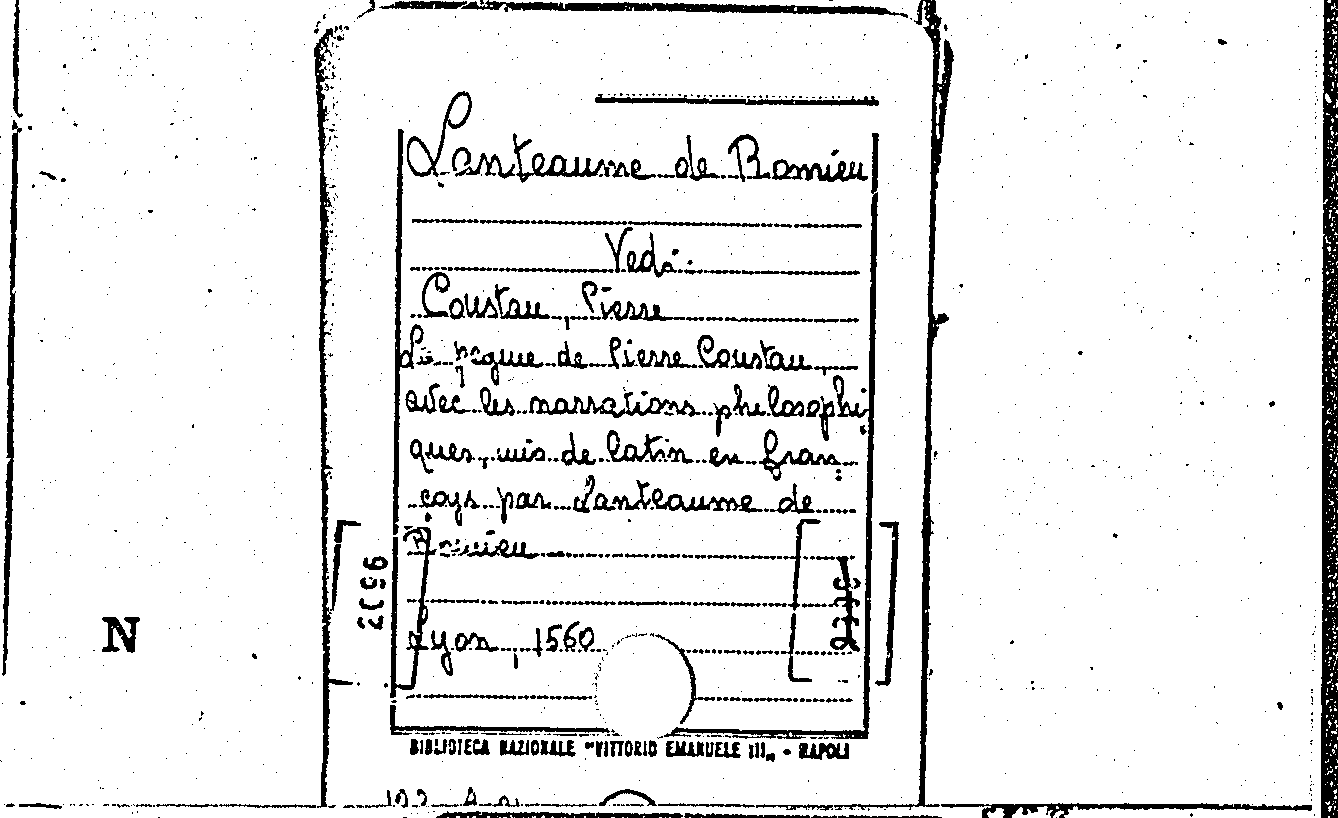 Lanteaume de Romieu
Vedi:
Coustau, Pierre
Le pegme de Pierre Coustau,
avec les narrations philosophi
ques, mis de latin en fran
çoys par Lanteaume de
Romieu
Lyon, 1560
N
BIBLIOTECA NAZIONALE "VITTORIO EMANUELE III„ - NAPOLI